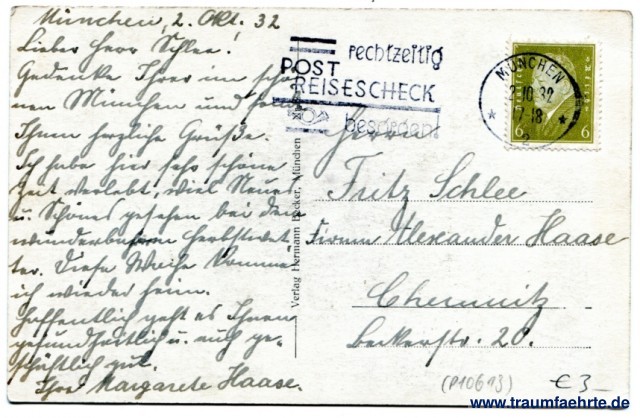 München, 2. Okt. 32
Lieber Herr Schlee!
Gedenke Ihrer im schö-
nen München und sende
Ihnen herzliche Grüße.
Ich habe hier sehr schöne
Zeit verlebt, viel Neues
u. Schönes gesehen bei dem
wunderbaren Herbstwet-
ter. Diese Woche komme
ich wieder heim.
Hoffentlich geht es Ihnen
gesundheitlich u. auch ge-
schäftlich gut.
Ihre Margarete Haase.
rechtzeitig
POST
REISESCHECK
besorgen!
MÜNCHEN
2.10.32
17-18
6 6
Verlag Hermann München
Herrn
Fritz Schlee
Firma Alexander Haase
Chemnitz
Beckerstr. 20.
(P10613) € 3-
www.traumfaehrte.de